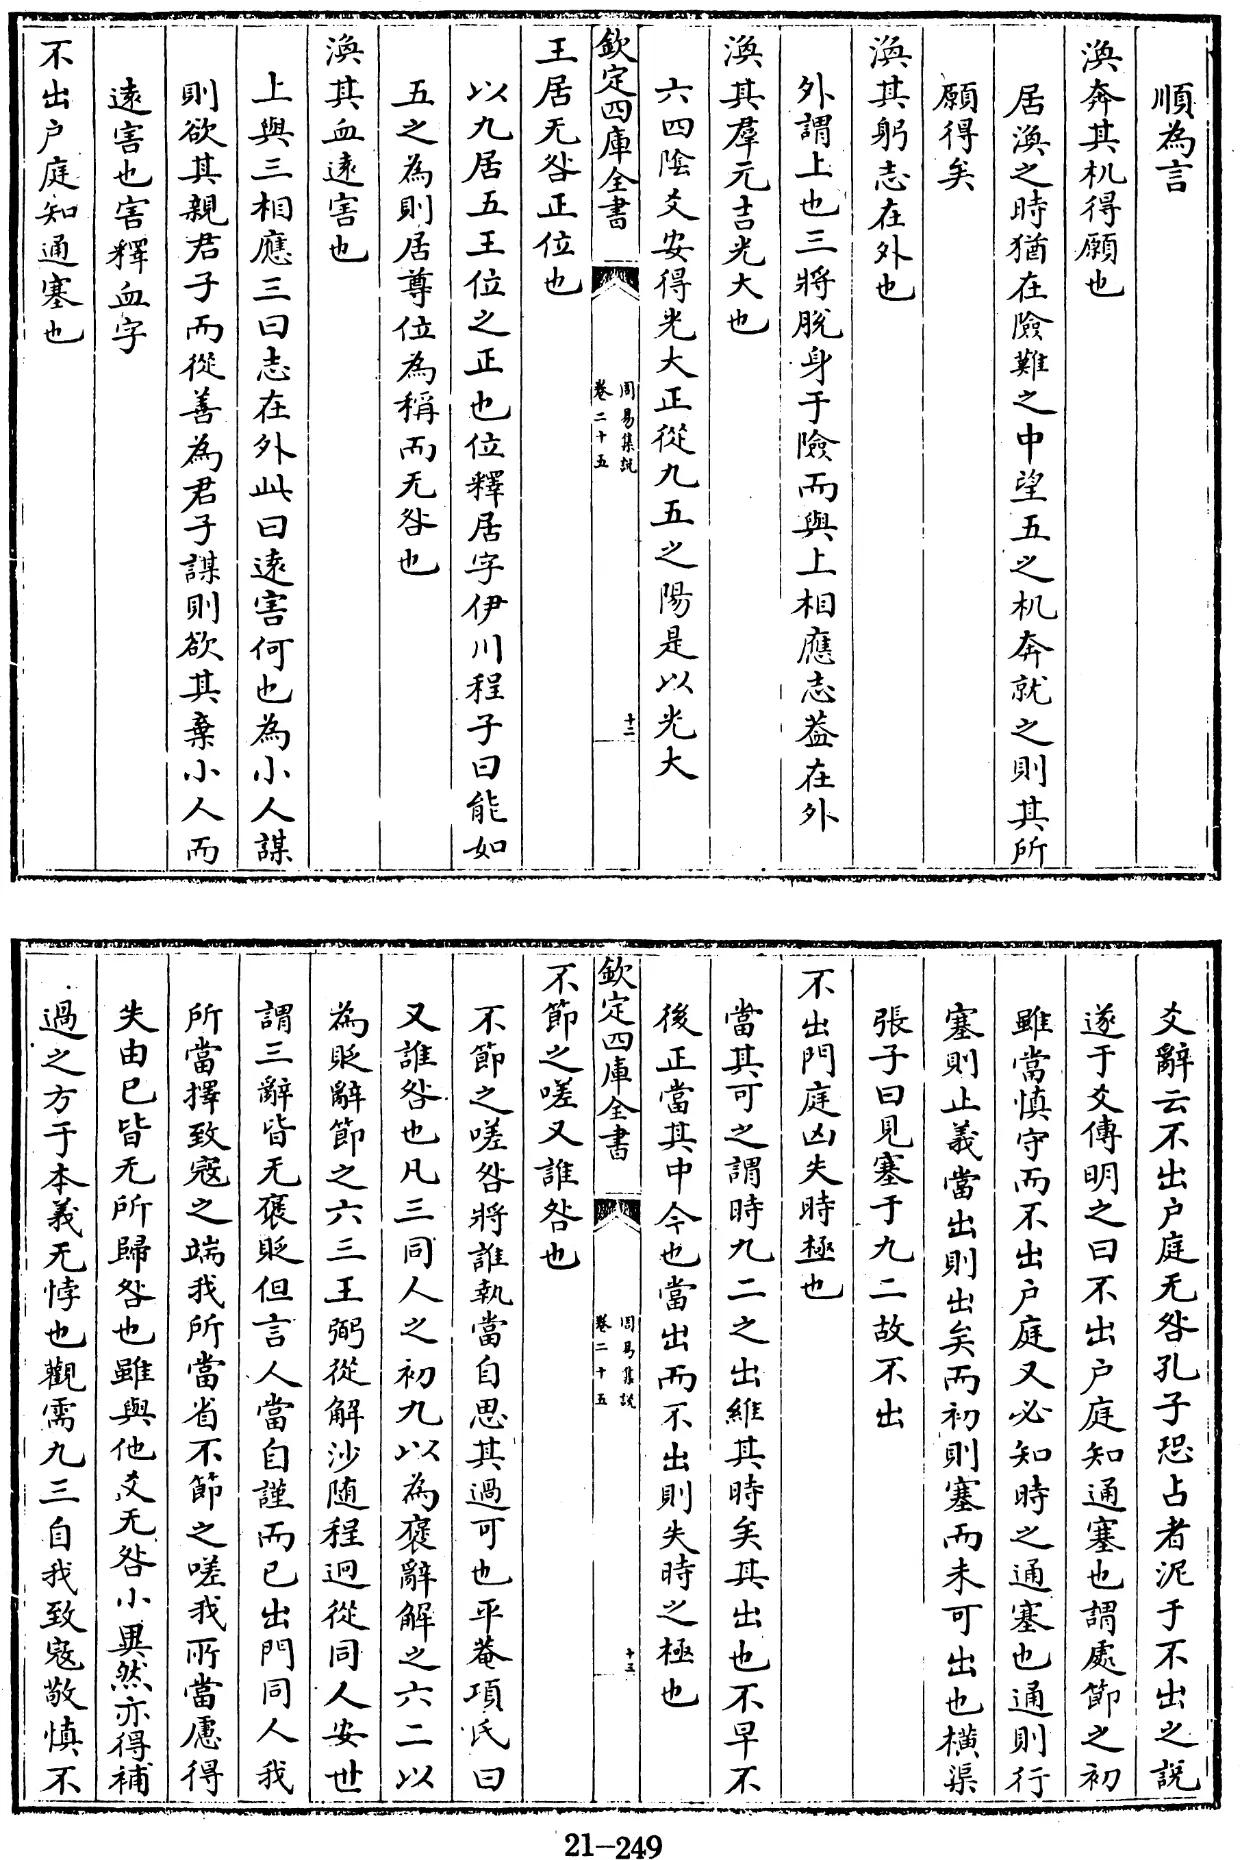 順為言
渙奔其机得願也
居渙之時猶在險難之中望五之机奔就之則其所
願得矣
渙其躬志在外也
外謂上也三將脫身于險而與上相應志葢在外
渙其羣元吉光大也
六四陰爻安得光大正從九五之陽是以光大
欽定四庫全書
周易集說
卷二十五
十二
王居无咎正位也
以九居五王位之正也位釋居字伊川程子曰能如
五之為則居尊位為稱而无咎也
渙其血遠害也
上與三相應三曰志在外此曰遠害何也為小人謀
則欲其親君子而從善為君子謀則欲其棄小人而
遠害也害釋血字
不出户庭知通塞也
爻辭云不出户庭无咎孔子恐占者泥于不出之說
遂于爻傳明之曰不出户庭知通塞也謂處節之初
雖當慎守而不出户庭又必知時之通塞也通則行
塞則止義當出則出矣而初則塞而未可出也橫渠
張子曰見塞于九二故不出
不出門庭凶失時極也
當其可之謂時九二之出維其時矣其出也不早不
後正當其中今也當出而不出則失時之極也
欽定四庫全書
周易集說
卷二十五
十三
不節之嗟又誰咎也
不節之嗟咎將誰執當自思其過可也平菴項氏曰
又誰咎也凡三同人之初九以為褒辭解之六二以
為貶辭節之六三王弼從解沙随程迥從同人安世
謂三辭皆无褒貶但言人當自謹而已出門同人我
所當擇致寇之端我所當省不節之嗟我所當慮得
失由已皆无所歸咎也雖與他爻无咎小異然亦得補
過之方于本義无悖也觀需九三自我致寇敬慎不
21-249